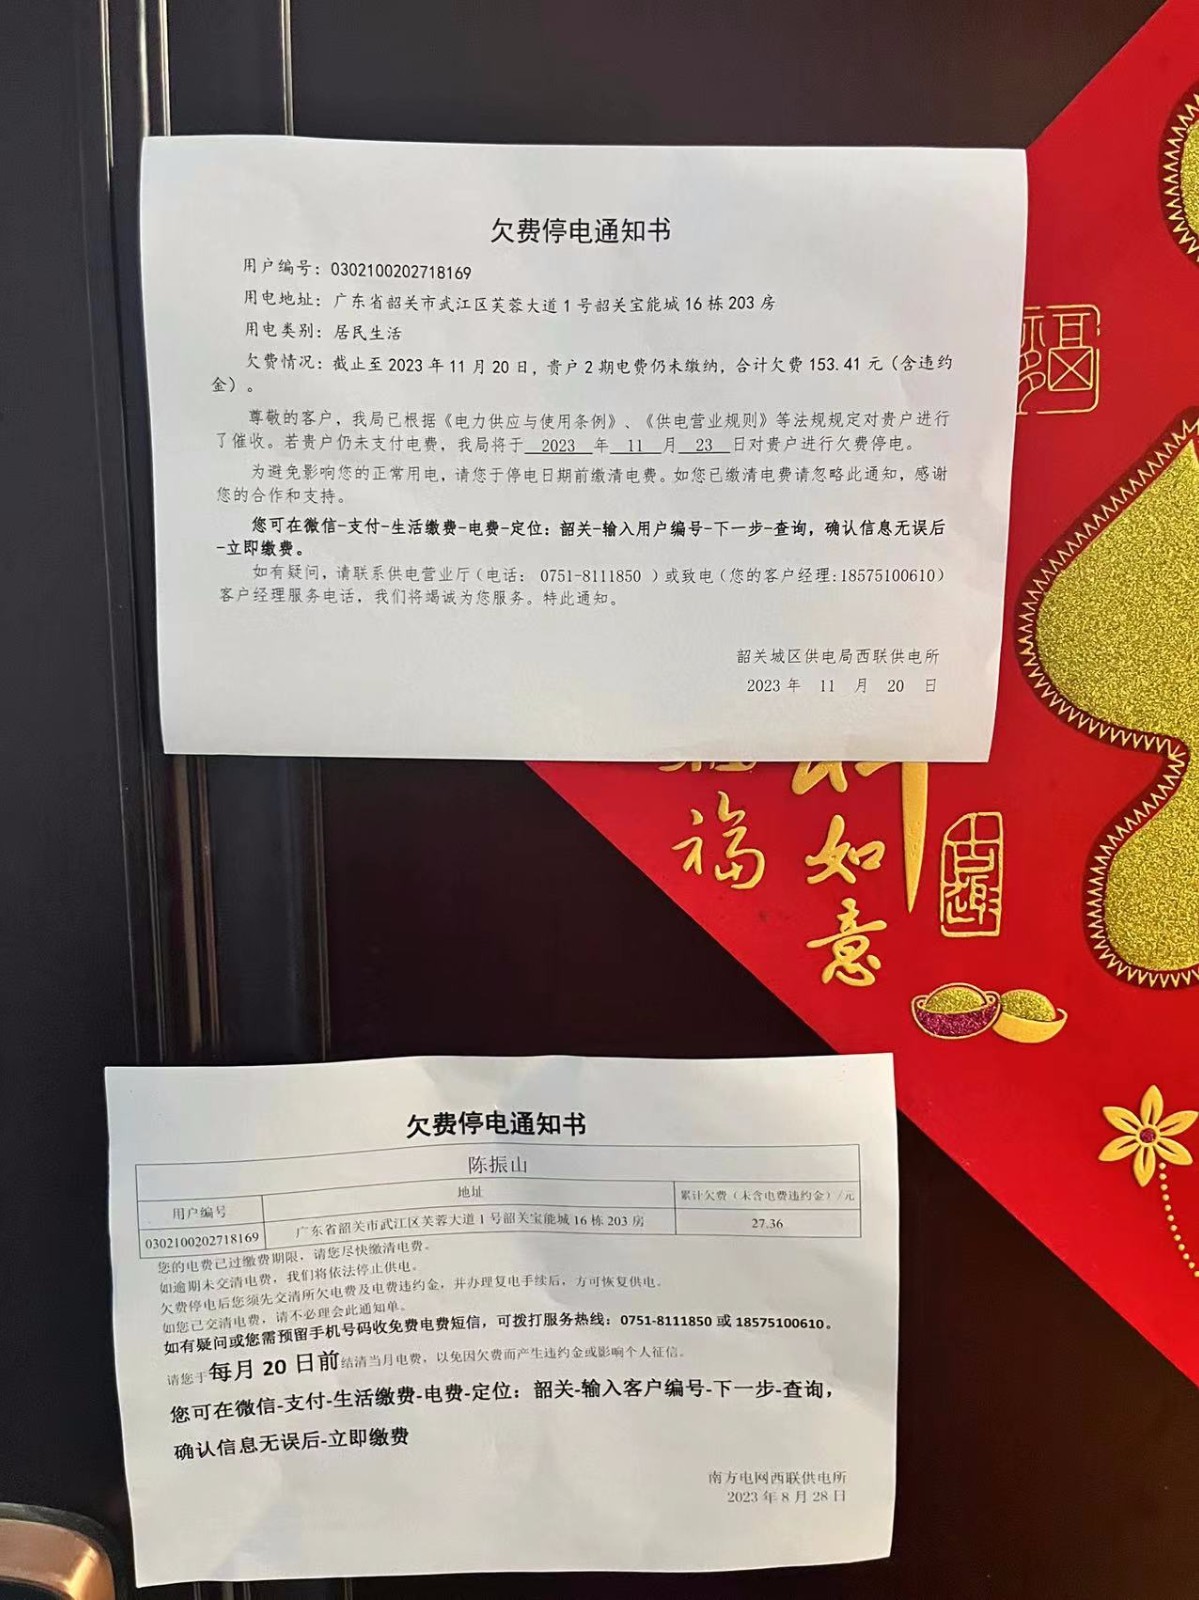 欠费停电通知书
用户编号：0302100202718169
用电地址：广东省韶关市武江区芙蓉大道1号韶关宝能城16栋203房
用电类别：居民生活
欠费情况：截止至2023年11月20日，贵户2期电费仍未缴纳，合计欠费153.41元（含违约
金）。
尊敬的客户，我局已根据《电力供应与使用条例》、《供电营业规则》等法规规定对贵户进行
了催收。若贵户仍未支付电费，我局将于 2023 年 11 月 23 日对贵户进行欠费停电。
为避免影响您的正常用电，请您于停电日期前缴清电费。如您已缴清电费请忽略此通知，感谢
您的合作和支持。
您可在微信-支付-生活缴费-电费-定位：韶关-输入用户编号-下一步-查询，确认信息无误后
-立即缴费。
如有疑问，请联系供电营业厅（电话： 0751-8111850 ）或致电（您的客户经理:18575100610）
客户经理服务电话，我们将竭诚为您服务。特此通知。
韶关城区供电局西联供电所
2023 年 11 月 20 日
福
如
意
欠费停电通知书
陈振山
用户编号 地址 累计欠费（未含电费违约金）/元
0302100202718169 广东省韶关市武江区芙蓉大道1号韶关宝能城16栋203房 27.36
您的电费已过缴费期限，请您尽快缴清电费。
如逾期未交清电费，我们将依法停止供电。
欠费停电后您须先交清所欠电费及电费违约金，并办理复电手续后，方可恢复供电。
如您已交清电费，请不必理会此通知单。
如有疑问或您需预留手机号码收免费电费短信，可拨打服务热线：0751-8111850 或 18575100610。
请您于每月 20 日前结清当月电费，以免因欠费而产生违约金或影响个人征信。
您可在微信-支付-生活缴费-电费-定位：韶关-输入客户编号-下一步-查询，
确认信息无误后-立即缴费
南方电网西联供电所
2023年8月28日